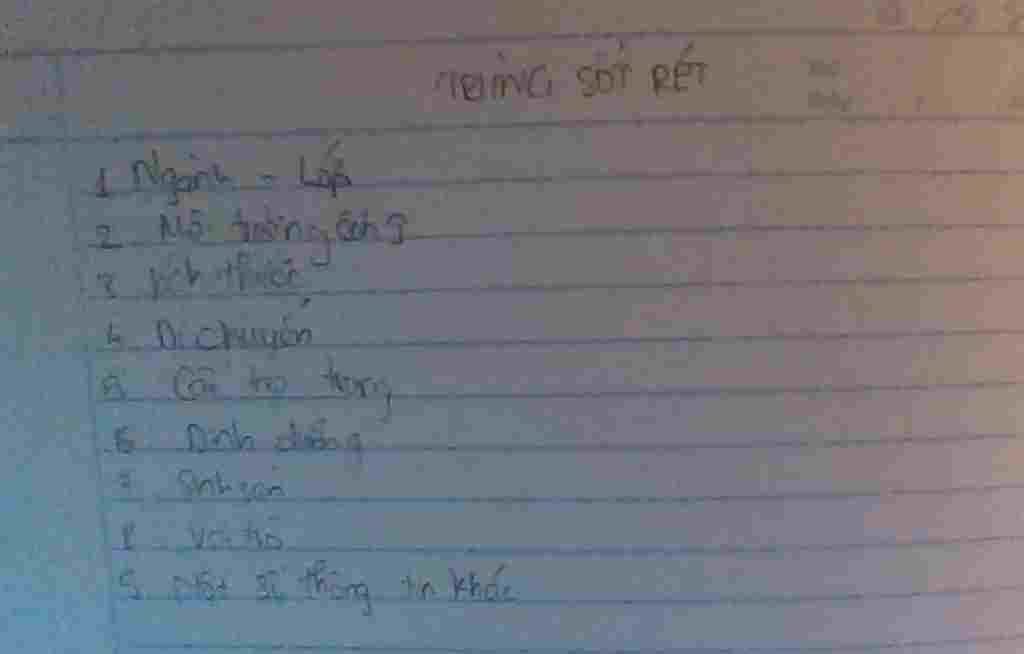 TRÙNG SỐT RÉT
1 Ngành - Lớp
2 Môi trường sống
3 Kích thước
4 Di chuyển
5 Cấu tạo trong
6 Dinh dưỡng
7 Sinh sản
8 Vai trò
9 Một số thông tin khác